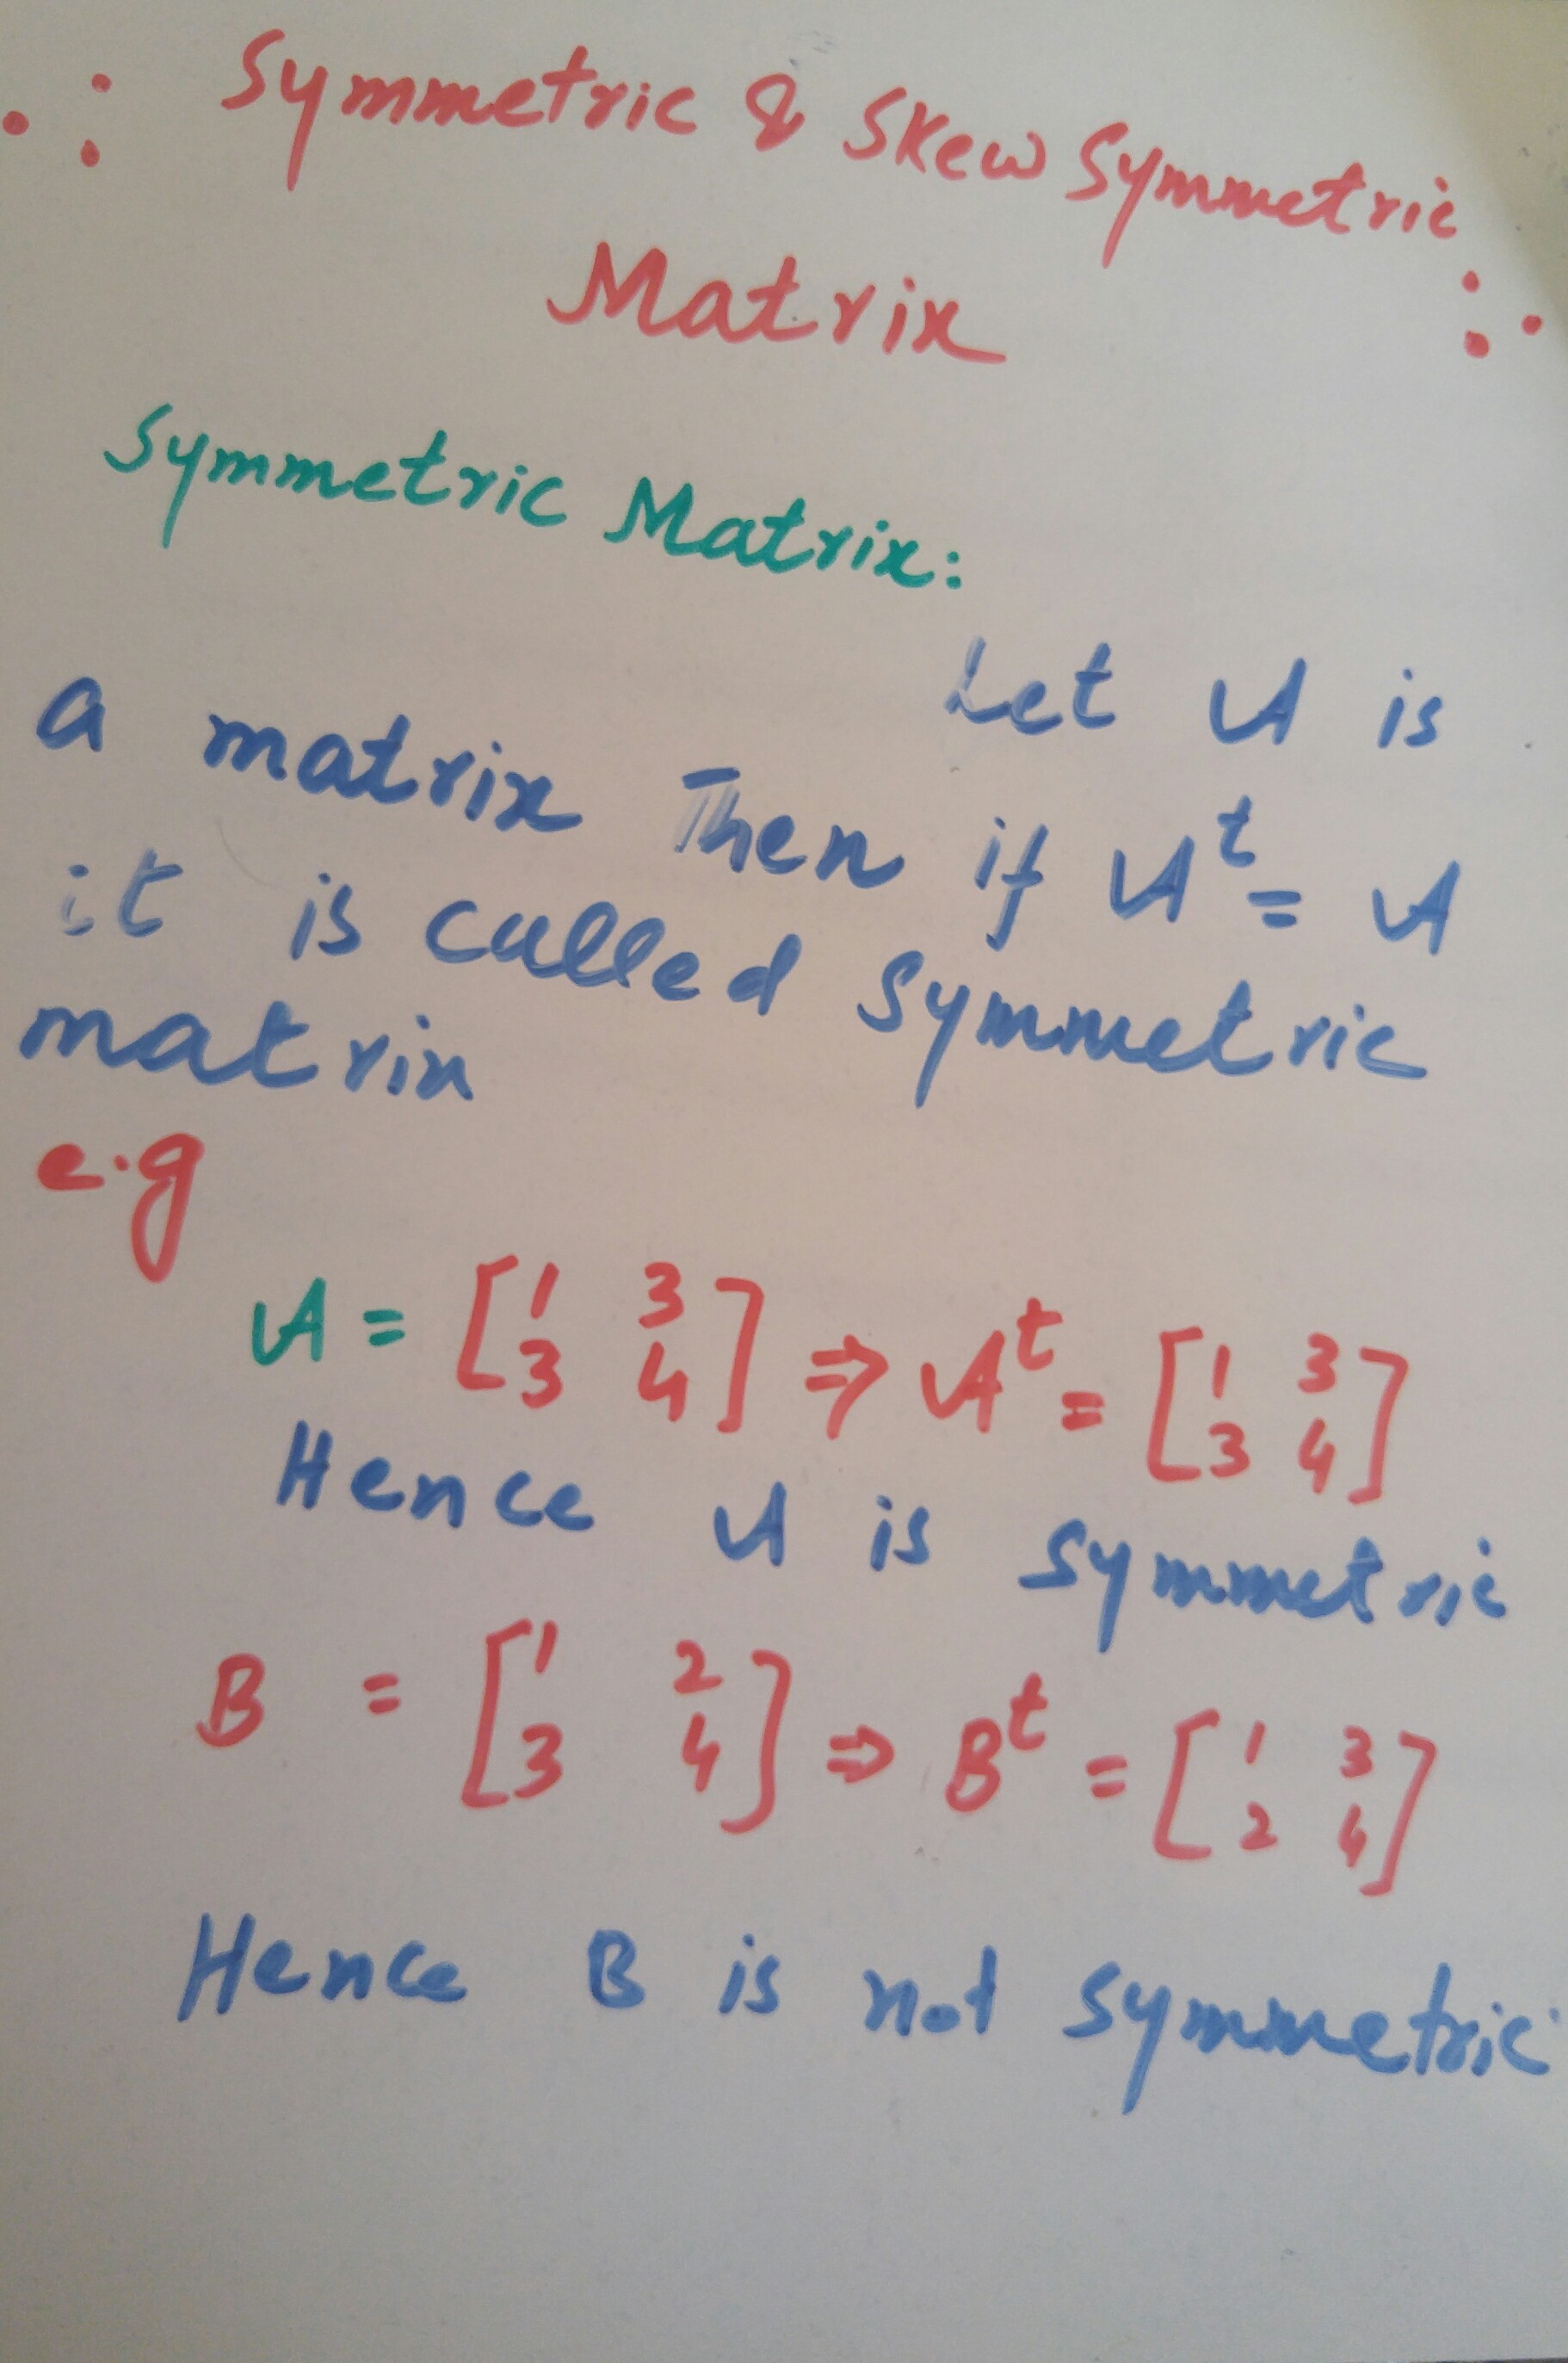 Symmetric & Skew Symmetric
Matrix
Symmetric Matrix:
Let A is
a matrix Then if Aᵗ = A
it is called Symmetric
matrix
e.g
A = [1 3
3 4] ⇒ Aᵗ = [1 3
3 4]
Hence A is symmetric
B = [1 2
3 4] ⇒ Bᵗ = [1 3
2 4]
Hence B is not symmetric